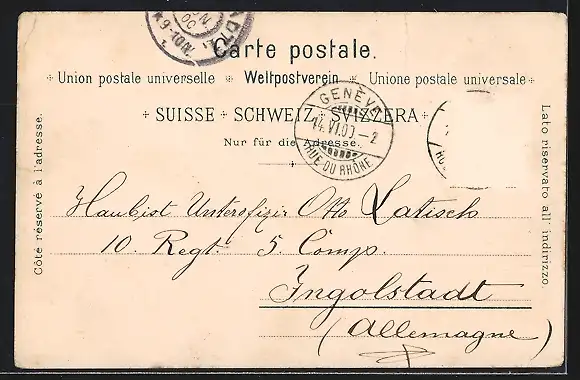 Carte postale.
Union postale universelle Weltpostverein Unione postale universale
SUISSE SCHWEIZ SVIZZERA
Nur für die Adresse.
Côté réservé à l'adresse.
Lato riservato all' indirizzo.
GENÈVE
14.VI.00–2
RUE DU RHÔNE
Otto Latisch
10. Regt. 5. Comp.
Ingolstadt
(Allemagne)